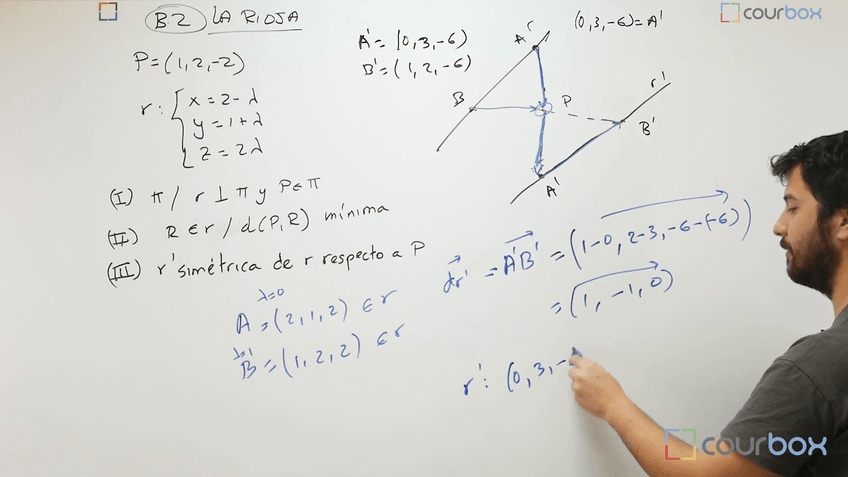 B.2 LA RIOJA
P=(1,2,-2)
r: { x=2-λ
y=1+λ
z=2λ
(I) π / r ⊥ π y P∈π
(II) R∈r / d(P,R) mínima
(III) r' simétrica de r respecto a P
λ=0
A=(2,1,2) ∈ r
λ=1
B=(1,2,2) ∈ r
A'=(0,3,-6)
B'=(1,2,-6)
(0,3,-6)=A'
A'
B
P
r'
B'
A'
dr' = A'B' = (1-0, 2-3, -6-(-6))
= (1, -1, 0)
r': (0, 3, -
courbox
courbox